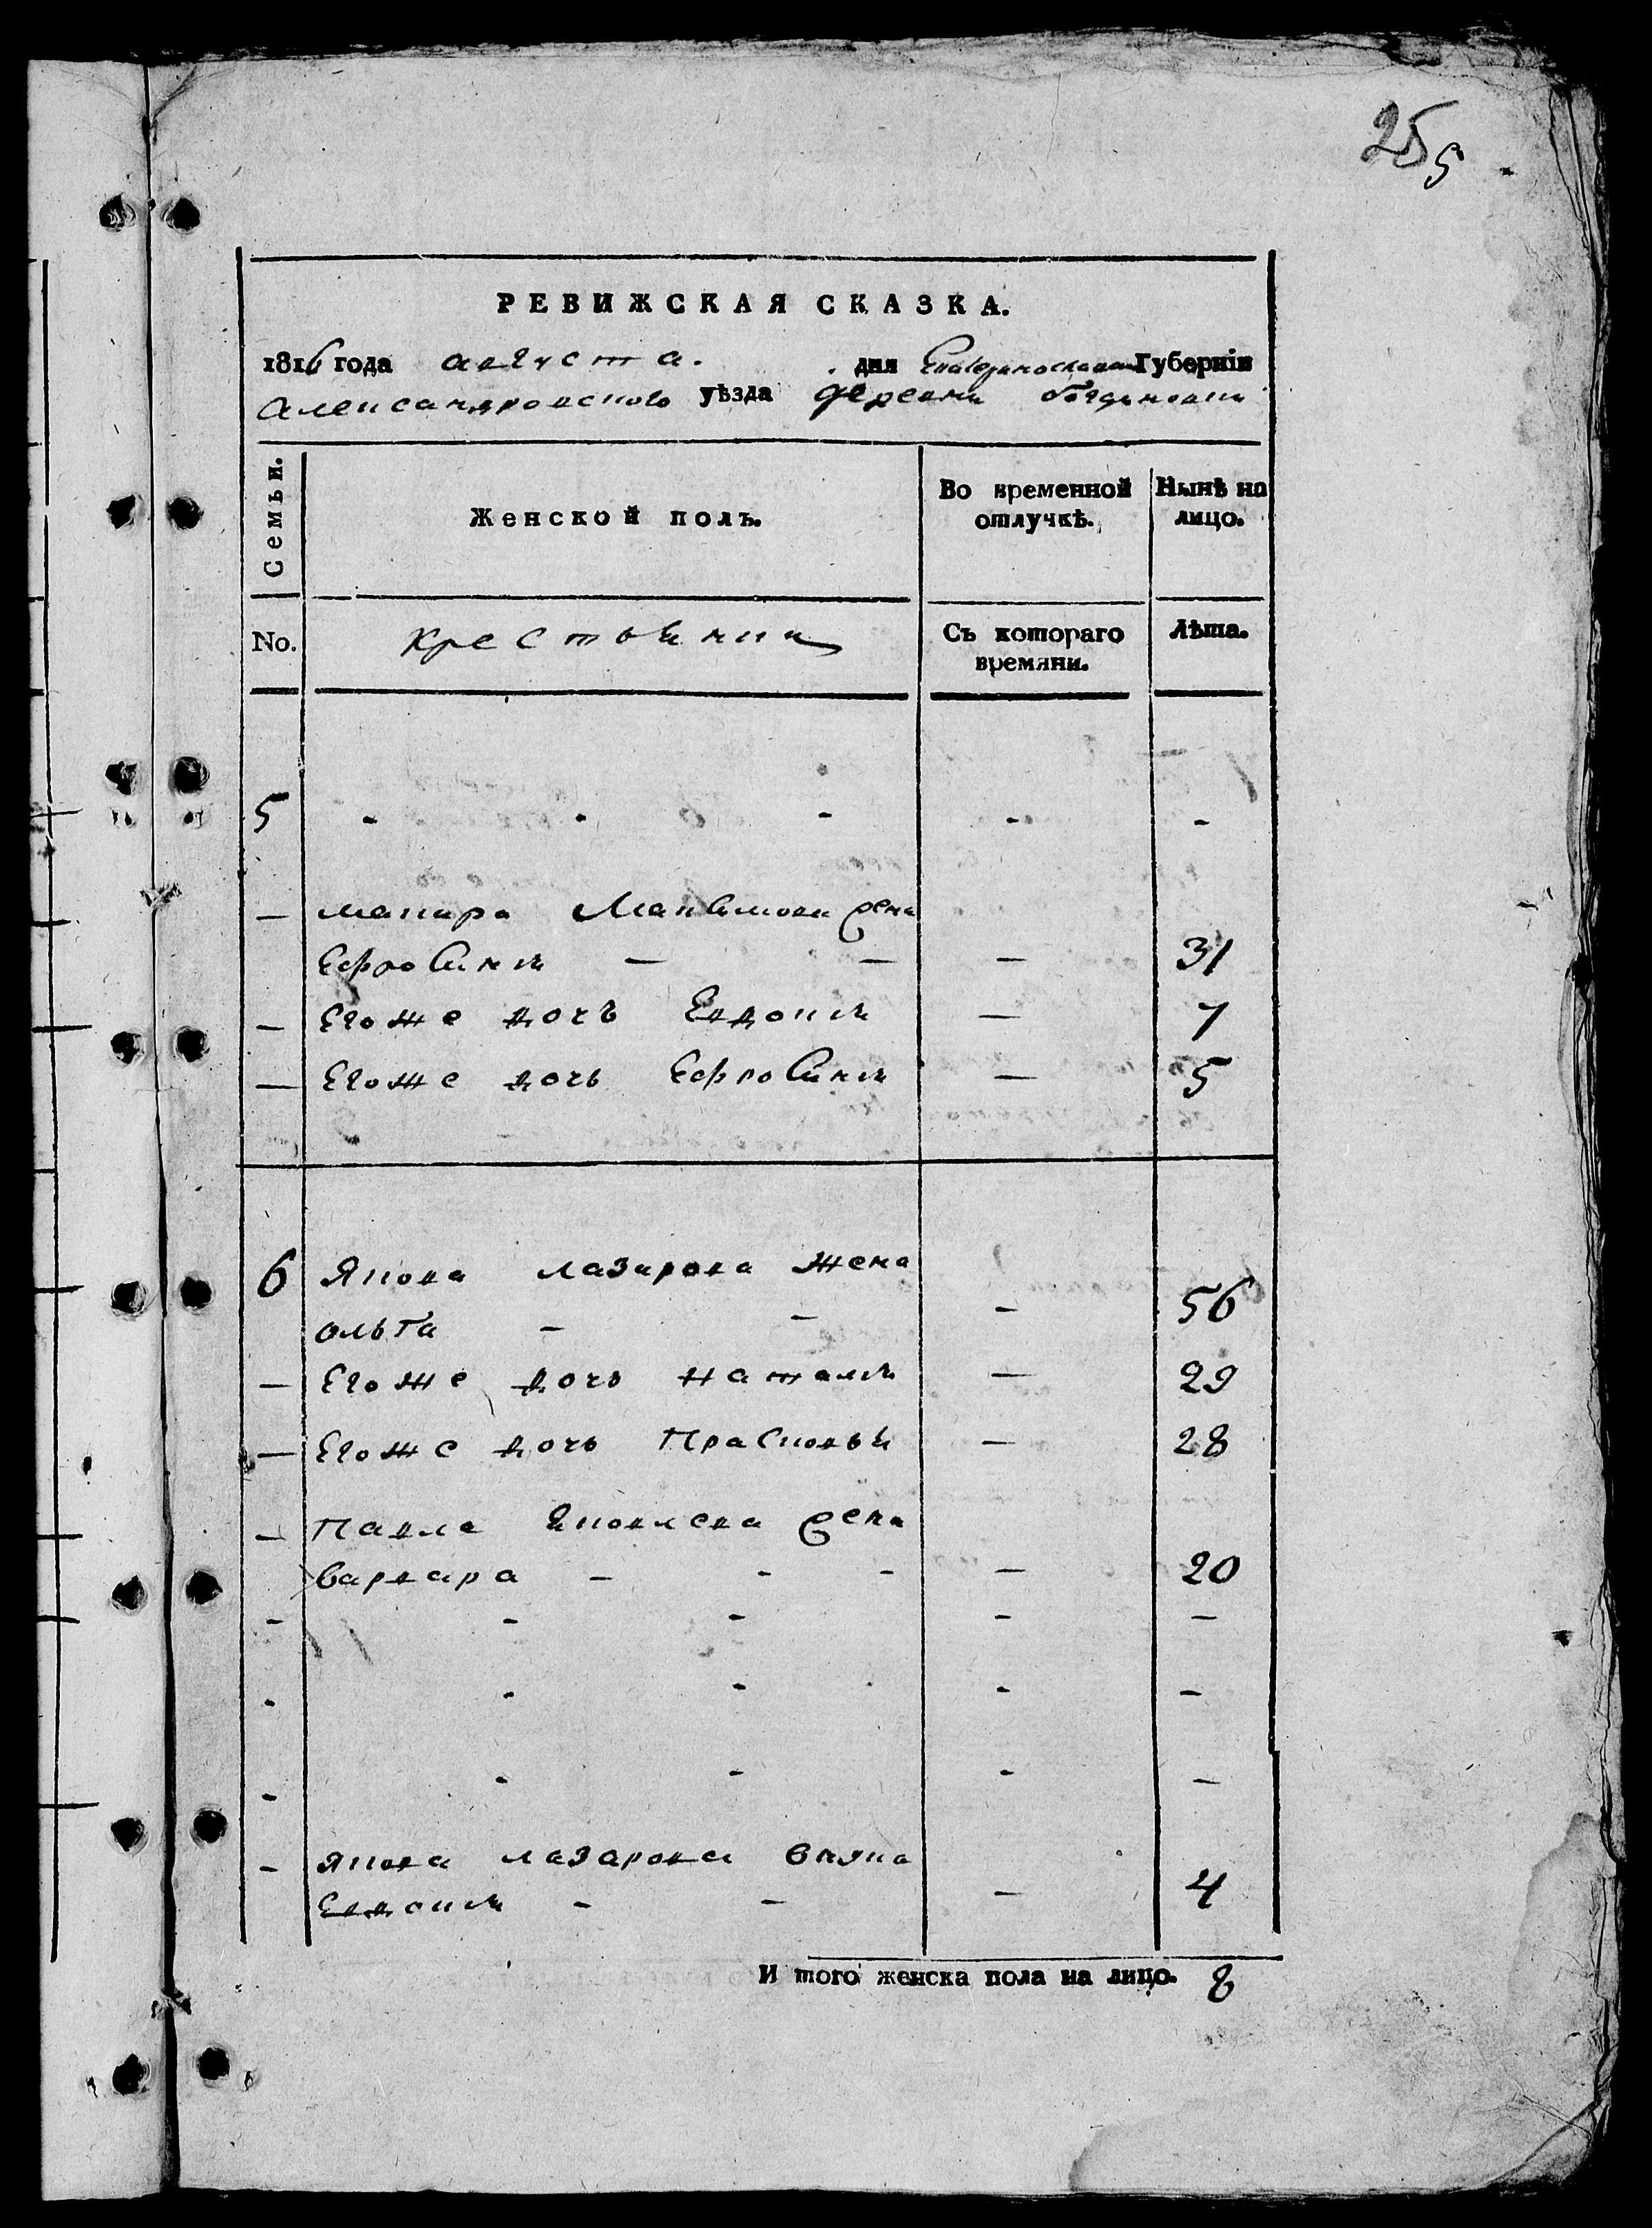 25
5
РЕВИЖСКАЯ СКАЗКА.
1816 года августа. дня Екатеринославской Губерніи
Александровского уѣзда деревни
Семьи.
Женской полъ.
Во временной отлучкѣ.
Нынѣ на лицо.
No.
крестьянки
Съ котораго времяни.
Лѣта.
5 - - - - -
— макара Максимова жена
Ефросиния — — — 31
— Егоже дочь Евдокия — 7
— Егоже дочь Ефросиния — 5
6 Якова лазарева жена
ольга — — - 56
— Егоже дочь наталия — 29
— Егоже дочь Прасковья — 28
- Павла Яковлева жена
варвара — - - — 20
- - - - —
- - - - —
- - - - —
- якова лазарева внука
Евдокия - - — 4
И того женска пола на лицо. 8